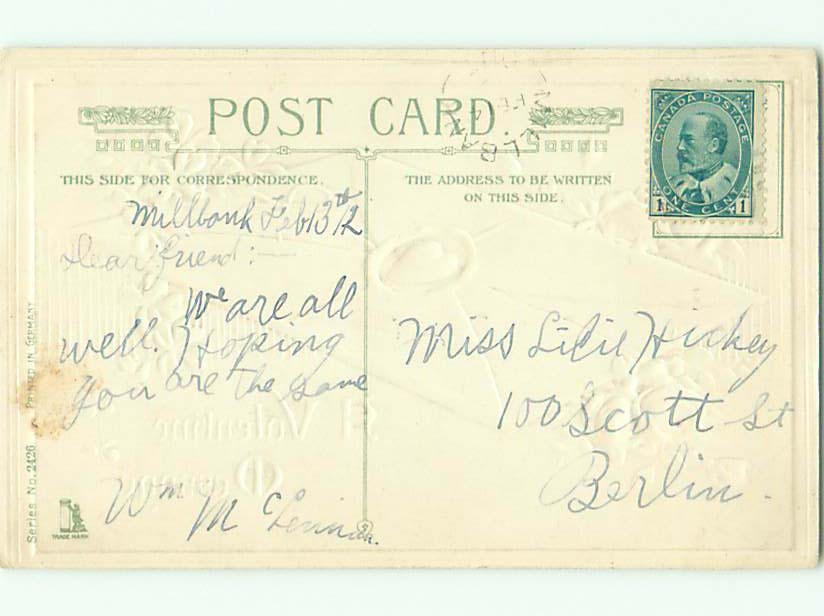 POST CARD.
THIS SIDE FOR CORRESPONDENCE.
Millbank Feb 13th 12
Dear friend:—
We are all
well. Hoping
you are the same
Wm McLennan.
THE ADDRESS TO BE WRITTEN
ON THIS SIDE.
Miss Lilie Hickey
100 Scott St
Berlin.
CANADA POSTAGE
1 ONE CENT 1
PRINTED IN GERMANY
Series No. 2426
TRADE MARK
A Valentine